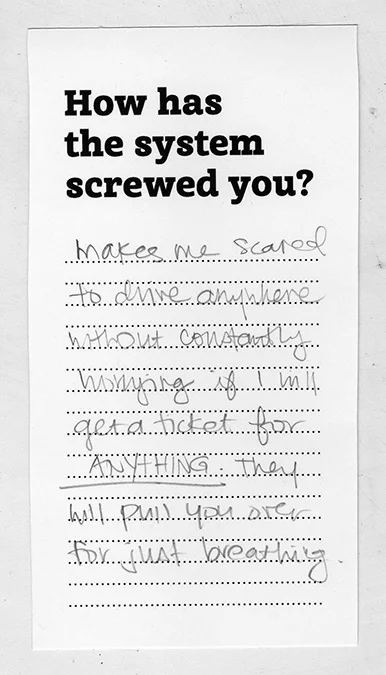 How has
the system
screwed you?
makes me scared
to drive anywhere
without constantly
worrying if I will
get a ticket for
ANYTHING. They
will pull you over
for just breathing.